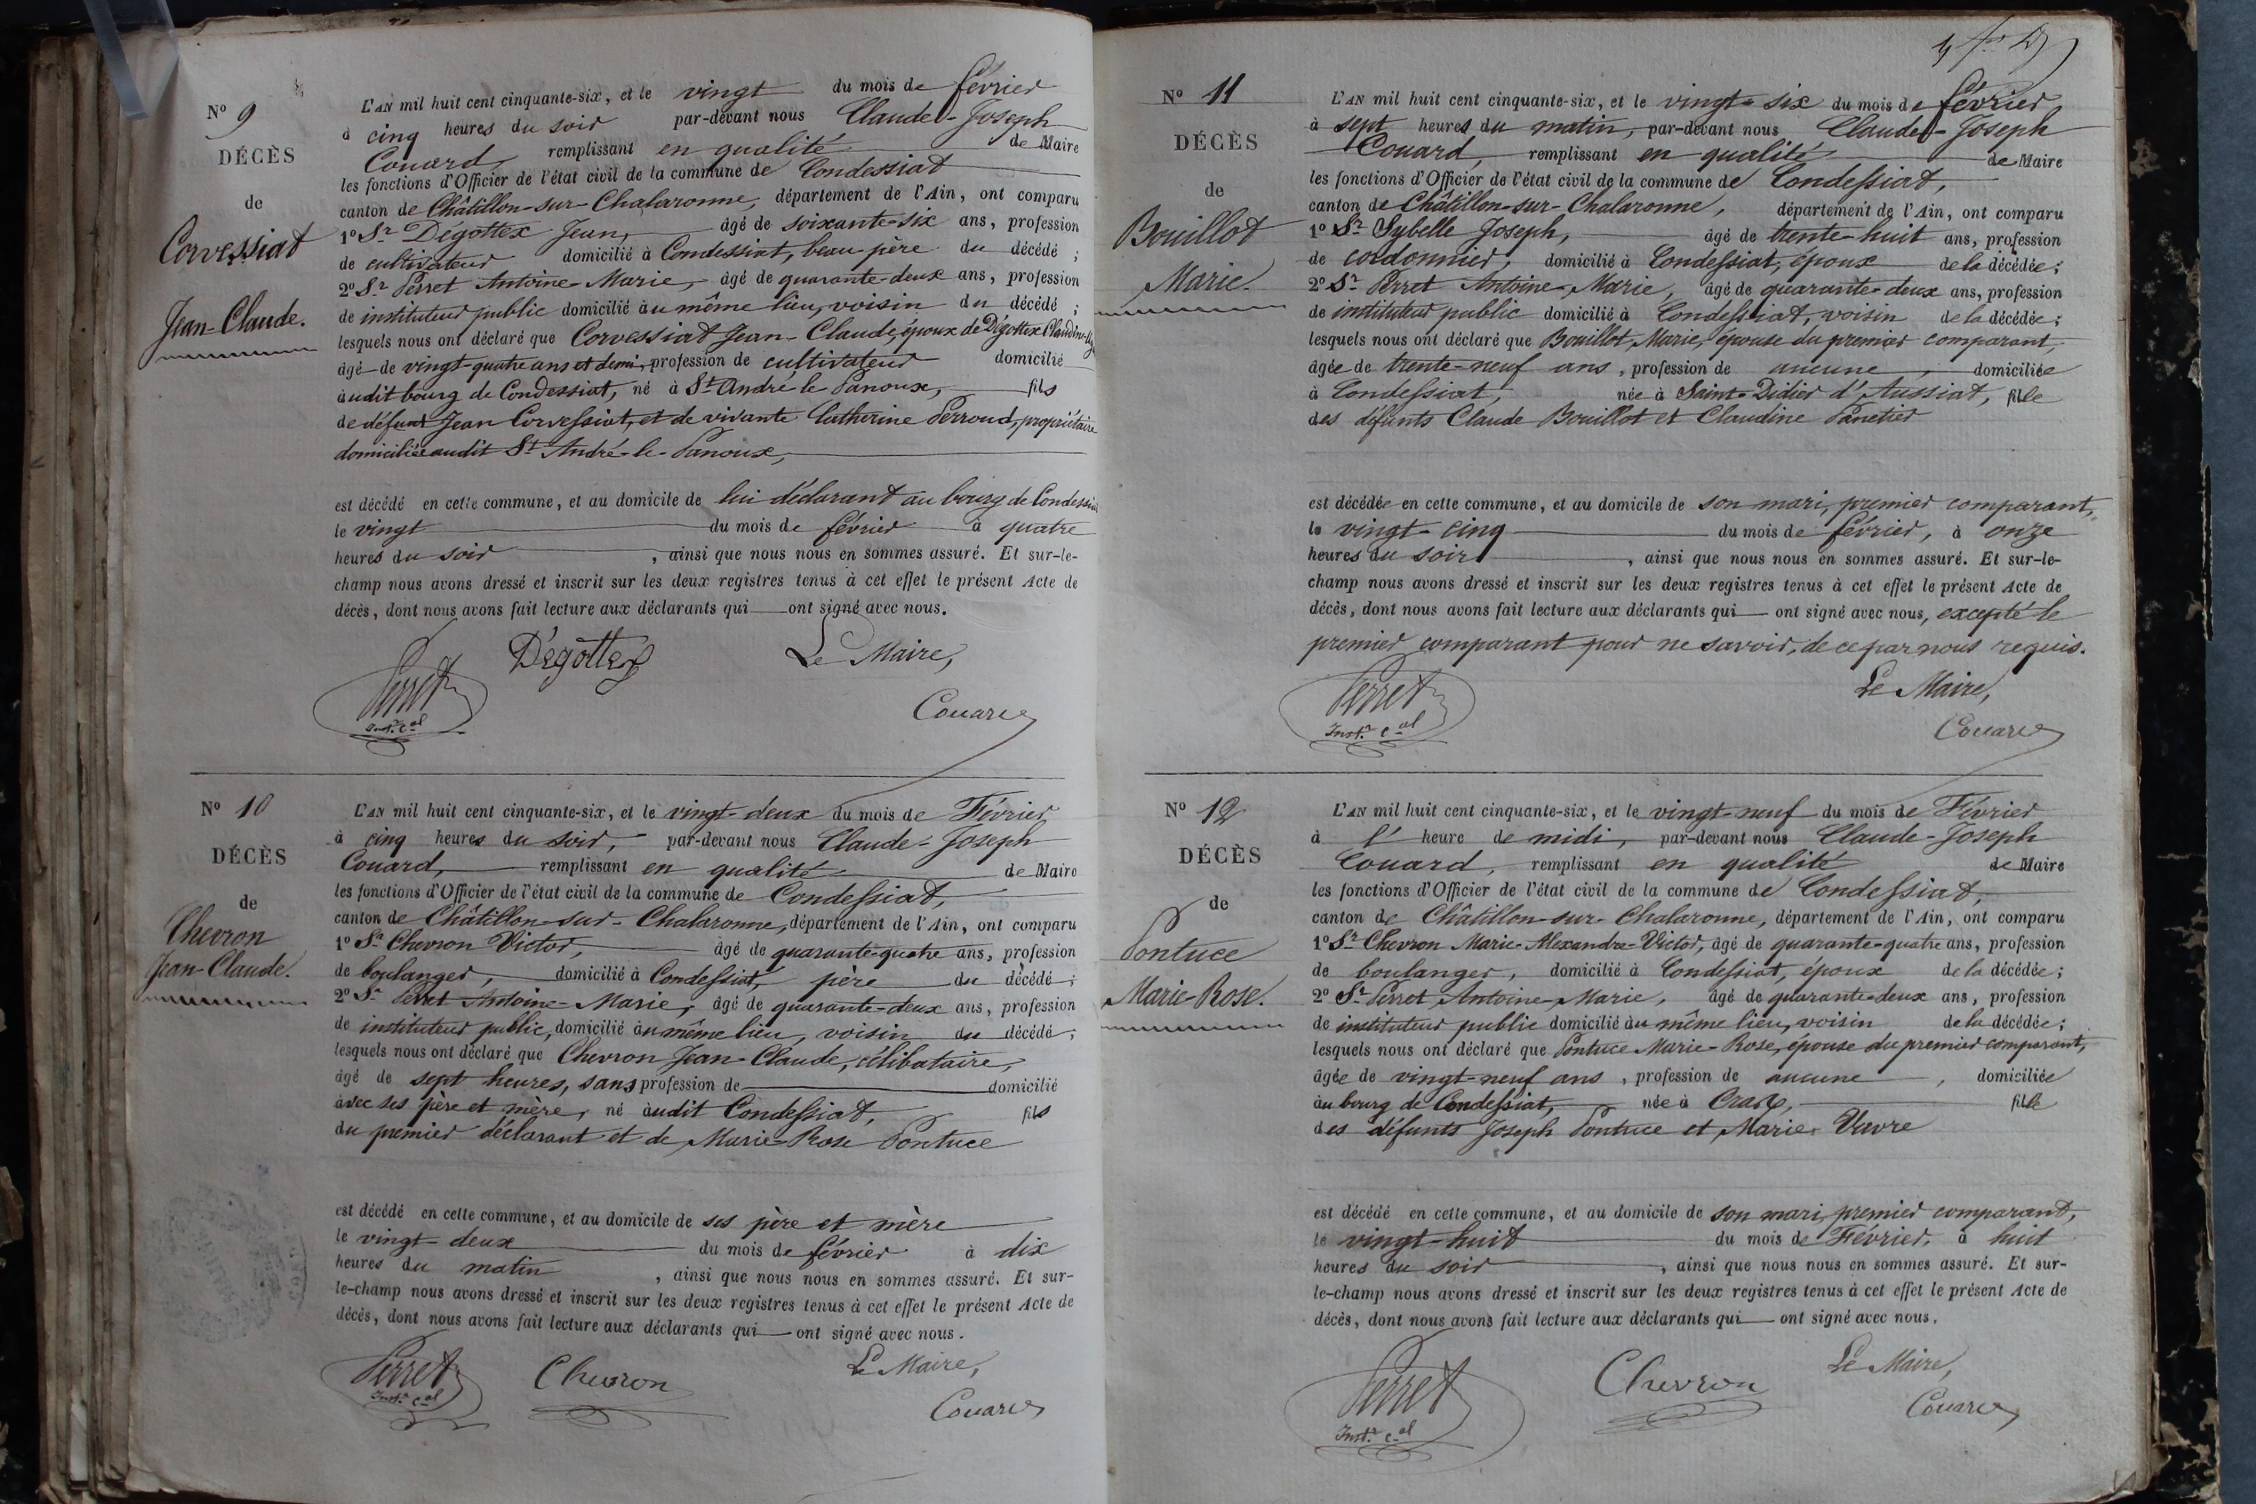 N° 9
DÉCÈS
de
Corvessiat
Jean-Claude.
L'AN mil huit cent cinquante-six, et le vingt du mois de février
à cinq heures du soir par-devant nous Claude-Joseph
Couard, remplissant en qualité de Maire
les fonctions d'Officier de l'état civil de la commune de Condessiat
canton de Châtillon-sur-Chalaronne, département de l'Ain, ont comparu
1° Sr Dégottex Jean, âgé de soixante-six ans, profession
de cultivateur domicilié à Condessiat, beau-père du décédé ;
2° Sr Perret Antoine-Marie, âgé de quarante-deux ans, profession
de instituteur public domicilié au même lieu, voisin du décédé ;
lesquels nous ont déclaré que Corvessiat Jean-Claude, époux de Dégottex Claudine
âgé de vingt-quatre ans et demi, profession de cultivateur domicilié
audit bourg de Condessiat, né à St André le Panoux, fils
de défunt Jean Corvessiat, et de vivante Catherine Perroud, propriétaire
domiciliée audit St André-le-Panoux,
est décédé en cette commune, et au domicile de lui déclarant au bourg de Condessiat
le vingt du mois de février à quatre
heures du soir, ainsi que nous nous en sommes assuré. Et sur-le-
champ nous avons dressé et inscrit sur les deux registres tenus à cet effet le présent Acte de
décès, dont nous avons fait lecture aux déclarants qui ont signé avec nous.
Perret Dégottex Le Maire,
Inst.r c.al Couard
N° 10
DÉCÈS
de
Chevron
Jean-Claude.
L'AN mil huit cent cinquante-six, et le vingt-deux du mois de Février
à cinq heures du soir, par-devant nous Claude-Joseph
Couard, remplissant en qualité de Maire
les fonctions d'Officier de l'état civil de la commune de Condessiat,
canton de Châtillon-sur-Chalaronne, département de l'Ain, ont comparu
1° Sr Chevron Victor, âgé de quarante-quatre ans, profession
de boulanger, domicilié à Condessiat, père du décédé ;
2° Sr Perret Antoine-Marie, âgé de quarante-deux ans, profession
de instituteur public, domicilié au même lieu, voisin du décédé ;
lesquels nous ont déclaré que Chevron Jean-Claude, célibataire,
âgé de sept heures, sans profession de domicilié
avec ses père et mère, né audit Condessiat, fils
du premier déclarant et de Marie-Rose Pontuce
est décédé en cette commune, et au domicile de ses père et mère
le vingt-deux du mois de février à dix
heures du matin, ainsi que nous nous en sommes assuré. Et sur-
le-champ nous avons dressé et inscrit sur les deux registres tenus à cet effet le présent Acte de
décès, dont nous avons fait lecture aux déclarants qui ont signé avec nous.
Perret Chevron Le Maire,
Inst.r c.al Couard
N° 11
DÉCÈS
de
Bouillot
Marie.
L'AN mil huit cent cinquante-six, et le vingt-six du mois de février,
à sept heures du matin, par-devant nous Claude-Joseph
Couard, remplissant en qualité de Maire
les fonctions d'Officier de l'état civil de la commune de Condessiat,
canton de Châtillon-sur-Chalaronne, département de l'Ain, ont comparu
1° Sr Sybelle Joseph, âgé de trente-huit ans, profession
de cordonnier, domicilié à Condessiat, époux de la décédée ;
2° Sr Perret Antoine-Marie, âgé de quarante-deux ans, profession
de instituteur public domicilié à Condessiat, voisin de la décédée ;
lesquels nous ont déclaré que Bouillot, Marie, épouse du premier comparant,
âgée de trente-neuf ans, profession de aucune, domiciliée
à Condessiat, née à Saint-Didier d'Aussiat, fille
des défunts Claude Bouillot et Claudine Panetier
est décédée en cette commune, et au domicile de son mari, premier comparant,
le vingt-cinq du mois de février, à onze
heures du soir, ainsi que nous nous en sommes assuré. Et sur-le-
champ nous avons dressé et inscrit sur les deux registres tenus à cet effet le présent Acte de
décès, dont nous avons fait lecture aux déclarants qui ont signé avec nous, excepté le
premier comparant pour ne savoir, de ce par nous requis.
Perret Le Maire,
Inst.r c.al Couard
N° 12
DÉCÈS
de
Pontuce
Marie-Rose.
L'AN mil huit cent cinquante-six, et le vingt-neuf du mois de Février
à l' heure de midi, par-devant nous Claude-Joseph
Couard, remplissant en qualité de Maire
les fonctions d'Officier de l'état civil de la commune de Condessiat,
canton de Châtillon-sur-Chalaronne, département de l'Ain, ont comparu
1° Sr Chevron Marie-Alexandre-Victor, âgé de quarante-quatre ans, profession
de boulanger, domicilié à Condessiat, époux de la décédée ;
2° Sr Perret Antoine-Marie, âgé de quarante-deux ans, profession
de instituteur public domicilié au même lieu, voisin de la décédée ;
lesquels nous ont déclaré que Pontuce Marie-Rose, épouse du premier comparant,
âgée de vingt-neuf ans, profession de aucune, domiciliée
au bourg de Condessiat, née à Cras, fille
des défunts Joseph Pontuce et Marie Vavre
est décédé en cette commune, et au domicile de son mari, premier comparant,
le vingt-huit du mois de Février, à huit
heures du soir, ainsi que nous nous en sommes assuré. Et sur-
le-champ nous avons dressé et inscrit sur les deux registres tenus à cet effet le présent Acte de
décès, dont nous avons fait lecture aux déclarants qui ont signé avec nous.
Perret Chevron Le Maire,
Inst.r c.al Couard